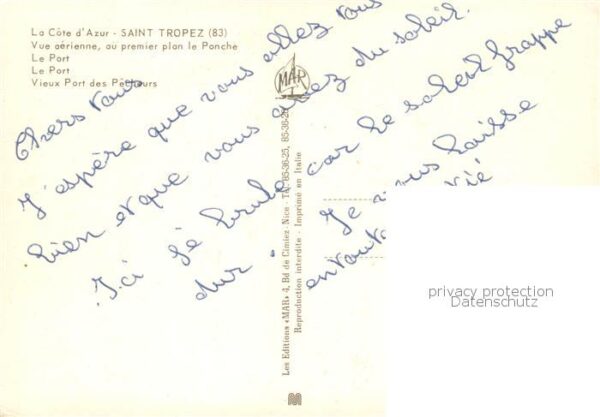 La Côte d'Azur - SAINT TROPEZ (83)
Vue aérienne, au premier plan le Ponche
Le Port
Le Port
Vieux Port des Pêcheurs
MAR
Chers vous
J'espère que vous allez vous
bien et que vous avez du soleil.
Ici je brule car le soleil frappe
dur.
Je vous laisse
entout
Les Editions «MAR» 4, Bd de Cimiez - Nice - Tél. 85-36-25, 85-36-26
Reproduction interdite - Imprimé en Italie
privacy protection
Datenschutz